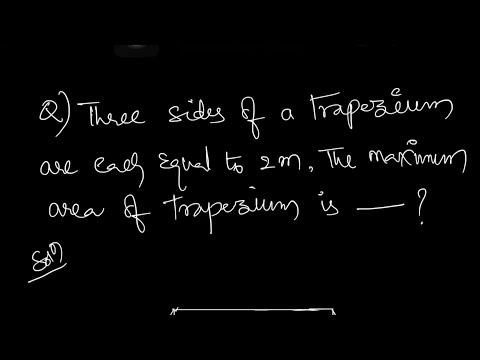 Q) Three sides of a trapezium
are each equal to 2m, The maximum
area of trapezium is — ?
Sol)